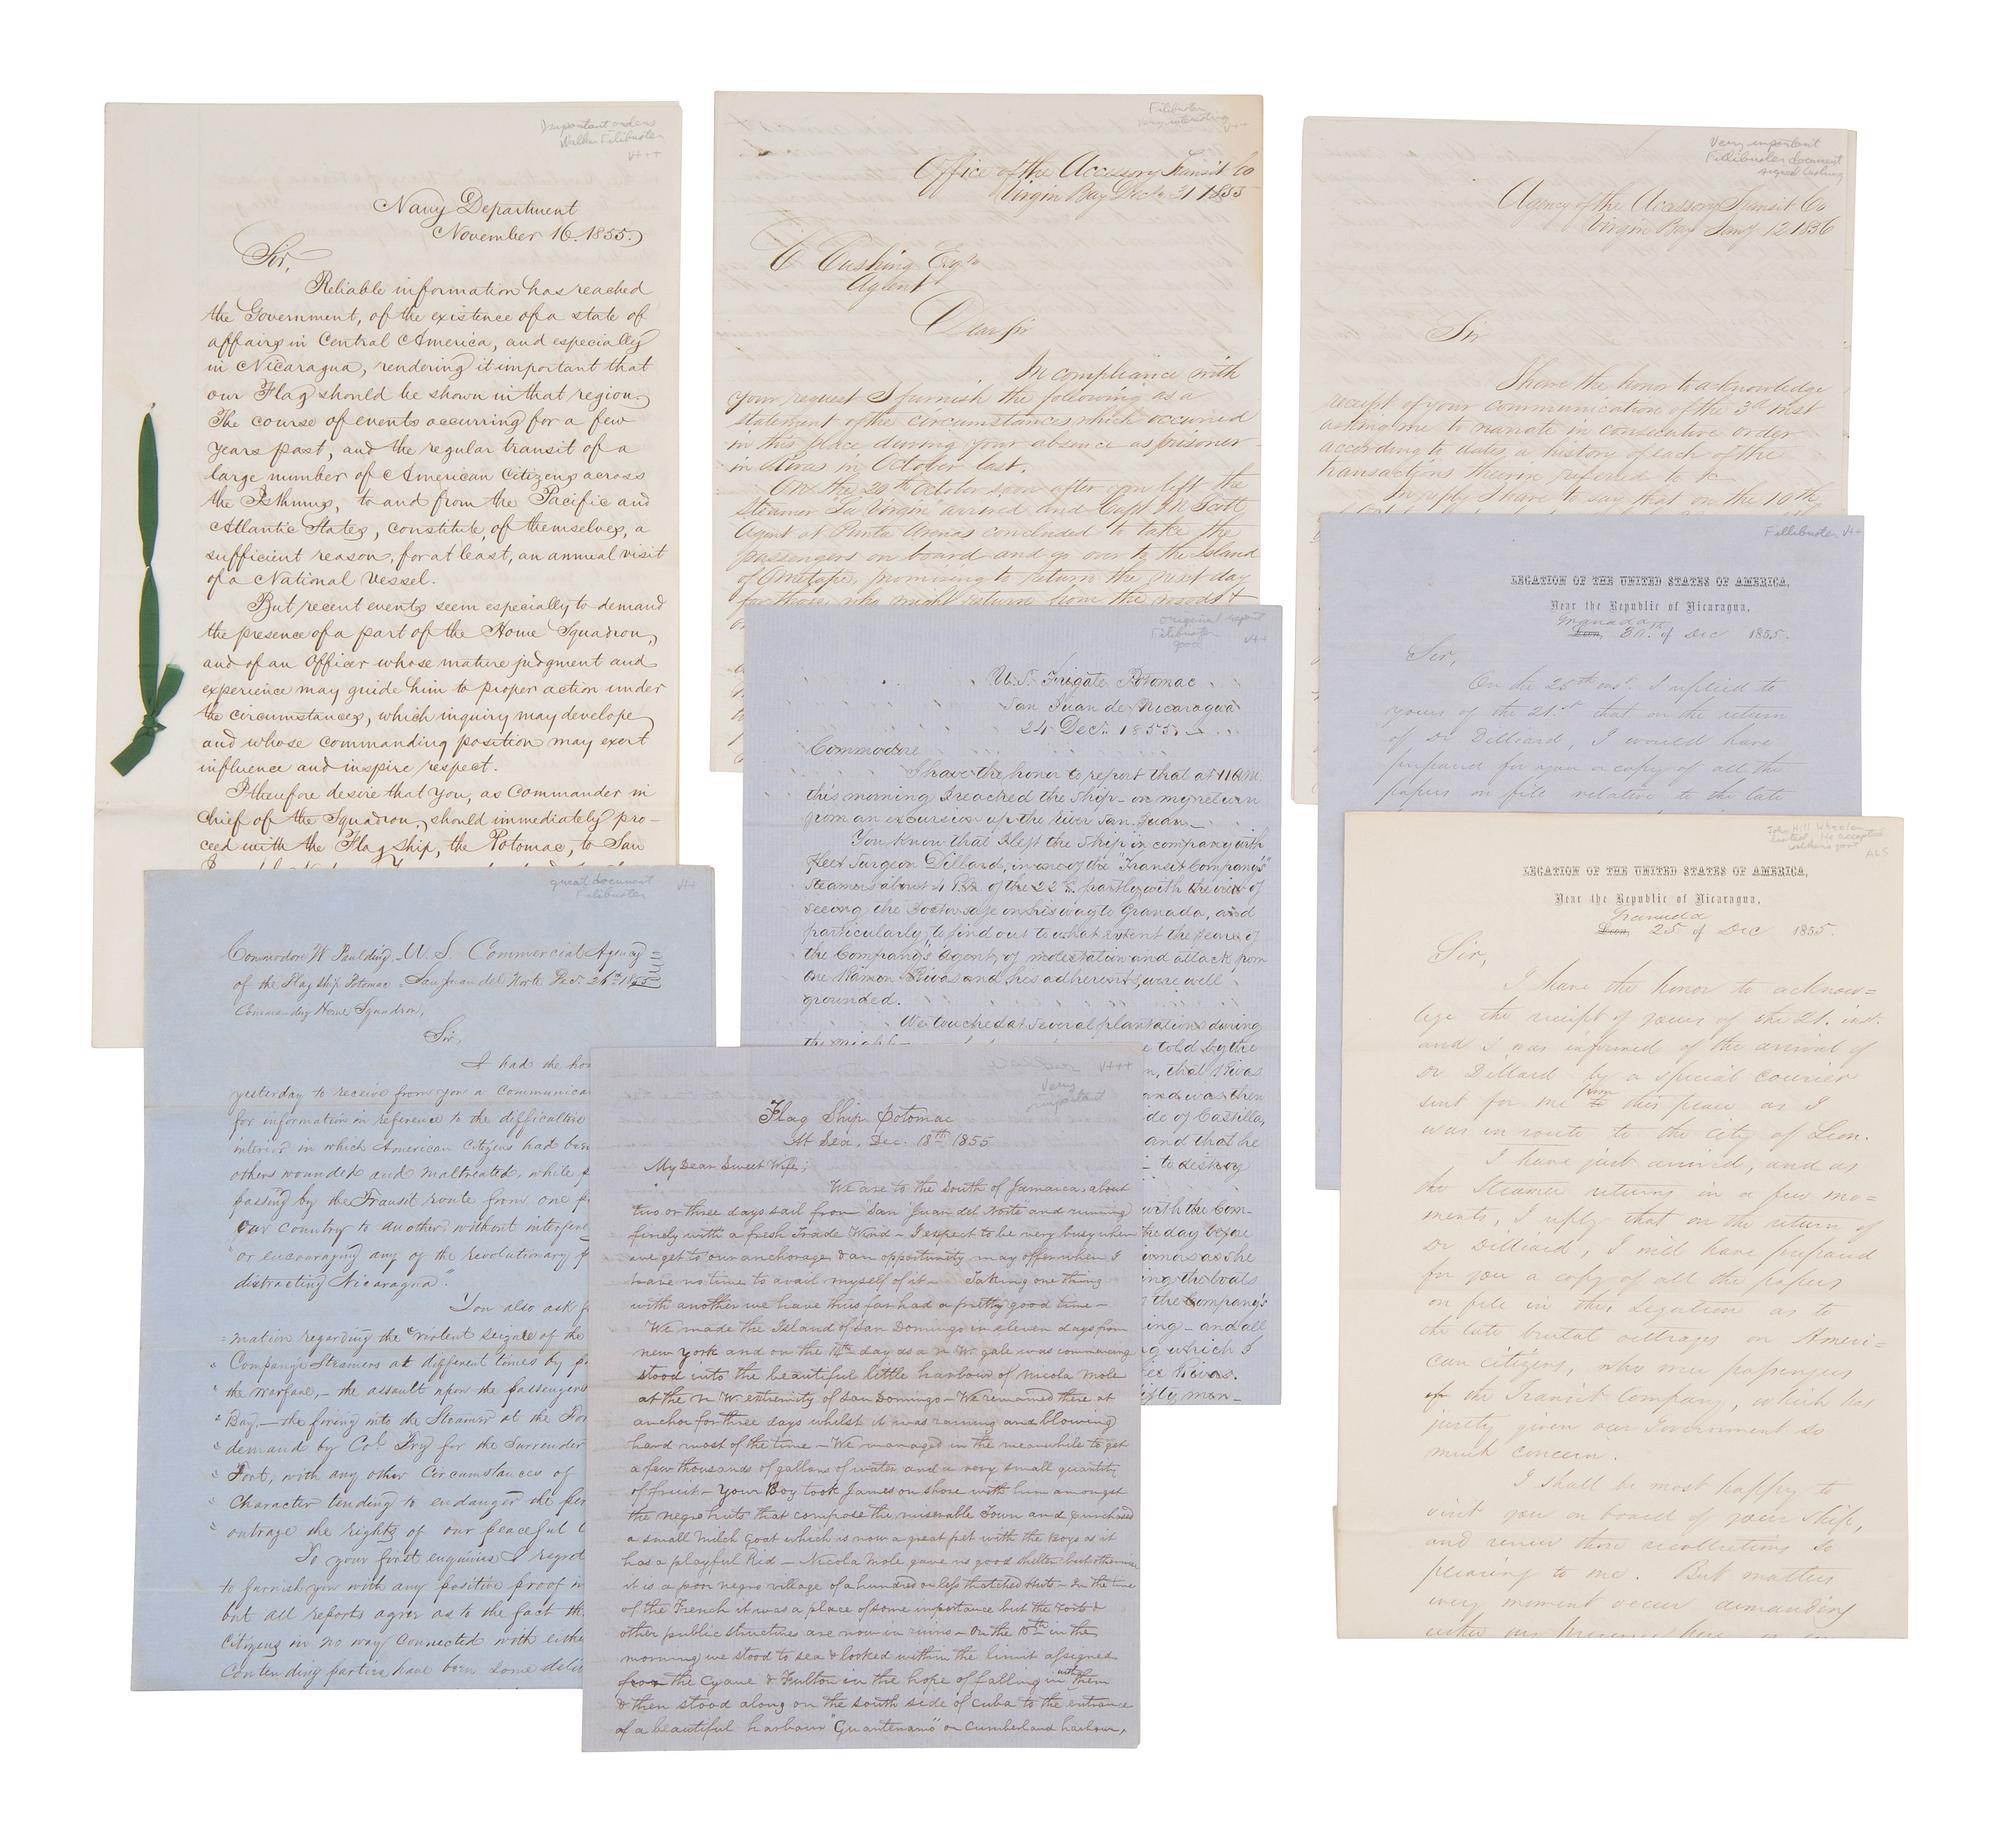 Important orders
Walker Filibuster
V+++
Navy Department
November 16. 1855.
Sir,
Reliable information has reached
the Government, of the existence of a state of
affairs in Central America, and especially
in Nicaragua, rendering it important that
our Flag should be shown in that region.
The course of events occurring for a few
years past, and the regular transit of a
large number of American Citizens across
the Isthmus, to and from the Pacific and
Atlantic States, constitute, of themselves, a
sufficient reason, for at least, an annual visit
of a National Vessel.
But recent events seem especially to demand
the presence of a part of the Home Squadron,
and of an Officer whose mature judgment and
experience may guide him to proper action under
the circumstances, which inquiry may develope,
and whose commanding position may exert
influence and inspire respect.
I therefore desire that you, as Commander in
Chief of the Squadron, should immediately pro-
ceed with the Flag ship, the Potomac, to San
Filibuster
Very interesting
V++
Office of the Accessory Transit Co
Virgin Bay Dec. 31 1855
C Cushing Esqr
Agent
Dear Sir
In compliance with
your request I furnish the following as a
statement of the circumstances which occurred
in this place during your absence as prisoner
in Rivas in October last.
On the 20th October soon after you left the
Steamer "La Virgin" arrived and Capt J N Scott
Agent at Punta Arenas concluded to take the
passengers on board and go over to the Island
of Ometape, promising to return the next day
for those, who might return from the woods &
Very important
Fillibuster document
signed Cushing
Agency of the Accessory Transit Co
Virgin Bay Jany 12 1856
Sir
I have the honor to acknowledge
receipt of your communication of the 3d inst
asking me to narrate in consecutive order
according to dates, a history of each of the
transactions therein referred to &c
In reply I have to say that on the 10th
Fillibuster V++
LEGATION OF THE UNITED STATES OF AMERICA,
Near the Republic of Nicaragua,
Granada
Leon, 30th of Dec 1855.
Sir,
On the 25th inst. I replied to
yours of the 21st that on the return
of Dr Dilliard, I would have
prepared for you a copy of all the
papers on file relative to the late
original report
Filibuster
good
V++
U.S. Frigate Potomac
San Juan de Nicaragua
24 Dec. 1855.
Commodore
I have the honor to report that at 11 A.M.
this morning I reached the Ship on my return
from an excursion up the River San Juan.
You know that I left the Ship in company with
Fleet Surgeon Dillard, in one of the "Transit Company's"
Steamers about 4 P.M. of the 22d. partly with the view of
seeing the Doctor safe on his way to Granada, and
particularly to find out to what extent the fears of
the Company's agent, of molestation and attack from
one Ramon Rivas and his adherents, were well
grounded.
We touched at several plantations during
the night
e told by the
n, that Rivas
and was then
de of Castilla,
and that he
to destroy
with the Com-
the day before
ing the boats
the Company's
ing - and all
g which I
Rivas.
great document
Filibuster
V++
Commodore H Paulding U. S. Commercial Agency
of the Flag ship Potomac San Juan del Norte Dec. 26th 1855
Commanding Home Squadron,
Sir,
I had the hon
yesterday to receive from you a Communica
for information in reference to the difficulties
interior in which American Citizens had been
others wounded and maltreated, while p
passing by the Transit route from one p
our Country to another without interfer
or encouraging any of the Revolutionary f
distracting Nicaragua".
You also ask f
mation regarding the "violent seizure of the
Company's Steamers at different times by p
the warfare, - the assault upon the passengers
Bay, - the firing into the Steamer at the For
demand by Col. Fry for the Surrender
Fort, with any other Circumstances of
Character tending to endanger the per
outrage the rights of our peaceful C
To your first enquiries I regret
to furnish you with any positive proof in
but all reports agree as to the fact th
Citizens in no way Connected with eithe
Contending parties have been some
V+++
Very
important
Flag Ship Potomac
At Sea, Dec. 18th 1855
My Dear Sweet Wife;
We are to the South of Jamaica, about
two or three days sail from "San Juan del Norte" and running
finely with a fresh Trade Wind - I expect to be very busy when
we get to our anchorage & an opportunity may offer when I
have no time to avail myself of it - Taking one thing
with another we have thus far had a pretty good time -
We made the Island of San Domingo in eleven days from
New York and on the 14th day as a N. W. gale was commencing
stood into the beautiful little harbour of Nicola Mole
at the N. W extremity of San Domingo - We remained there at
anchor for three days whilst it was raining and blowing
hard most of the time - We managed in the meanwhile to get
a few thousands of gallons of water and a very small quantity
of fruit - Your Boy took James on shore with him amongst
the negro huts that compose the miserable Town and purchased
a small Milch Goat which is now a great pet with the Boys as it
has a playful Kid - Nicola Mole gave us good shelter but otherwise
it is a poor negro village of a hundred or less thatched Huts - In the time
of the French it was a place of some importance but the Forts &
other public structures are now in ruins - On the 10th in the
morning we stood to sea & looked within the limit assigned
from the Cyane & Fulton in the hope of falling in with them
& then stood along on the south side of Cuba to the entrance
of a beautiful harbour "Guantenamo" or Cumberland harbour,
John Hill Wheeler
he accepted
Walker's govt
ALS
LEGATION OF THE UNITED STATES OF AMERICA,
Near the Republic of Nicaragua,
Granada
Leon, 25 of Dec 1855.
Sir,
I have the honor to acknow=
lege the receipt of yours of the 21. inst.
and I was informed of the arrival of
Dr Dillard by a special courier
sent for me from this place as I
was in route to the City of Leon.
I have just arrived, and as
the Steamer returns in a few mo=
ments, I reply that on the return of
Dr Dilliard, I will have prepared
for you a copy of all the papers
on file in the Legation as to
the late brutal outrages on Ameri=
can citizens, who were passengers
of the Transit Company, which has
justly given our Government so
much concern.
I shall be most happy to
visit you on board of your Ship,
and renew those recollections so
pleasing to me. But matters
every moment occur demanding